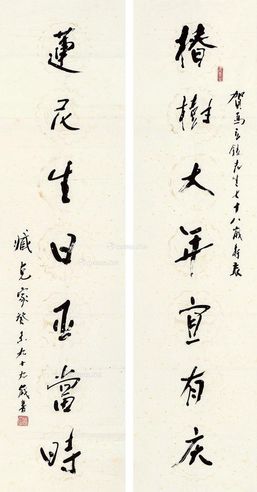 椿樹大年宜有庆
賀馬先生七十八歲壽辰
蓮尼生日正當時
臧克家癸未九十九歲書